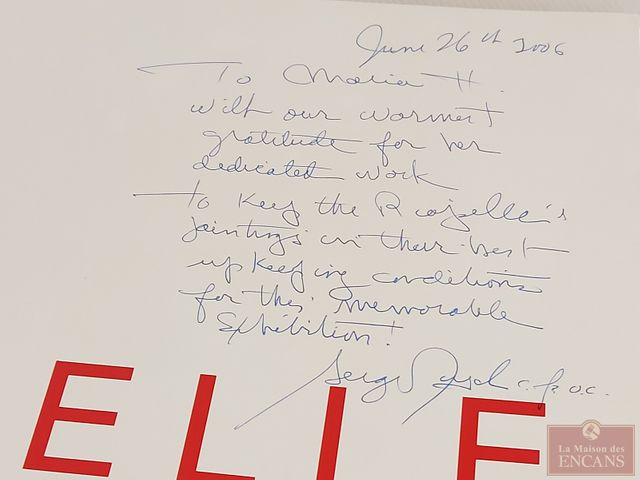 June 26th 2006
To Maria H.
with our warmest
gratitude for her
dedicated work
To Keep the Riopelle's
paintings in their best
up keeping conditions
for this memorable
Exhibition!
Serge
ELLE
La Maison des
ENCANS